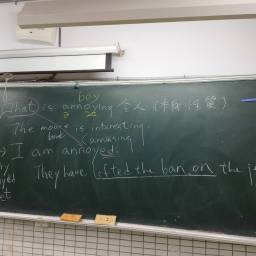 boy
That is annoying 个人 (本身性質)
The mouse is interesting.
book amusing
→ I am annoyed.
They have lifted the ban on the